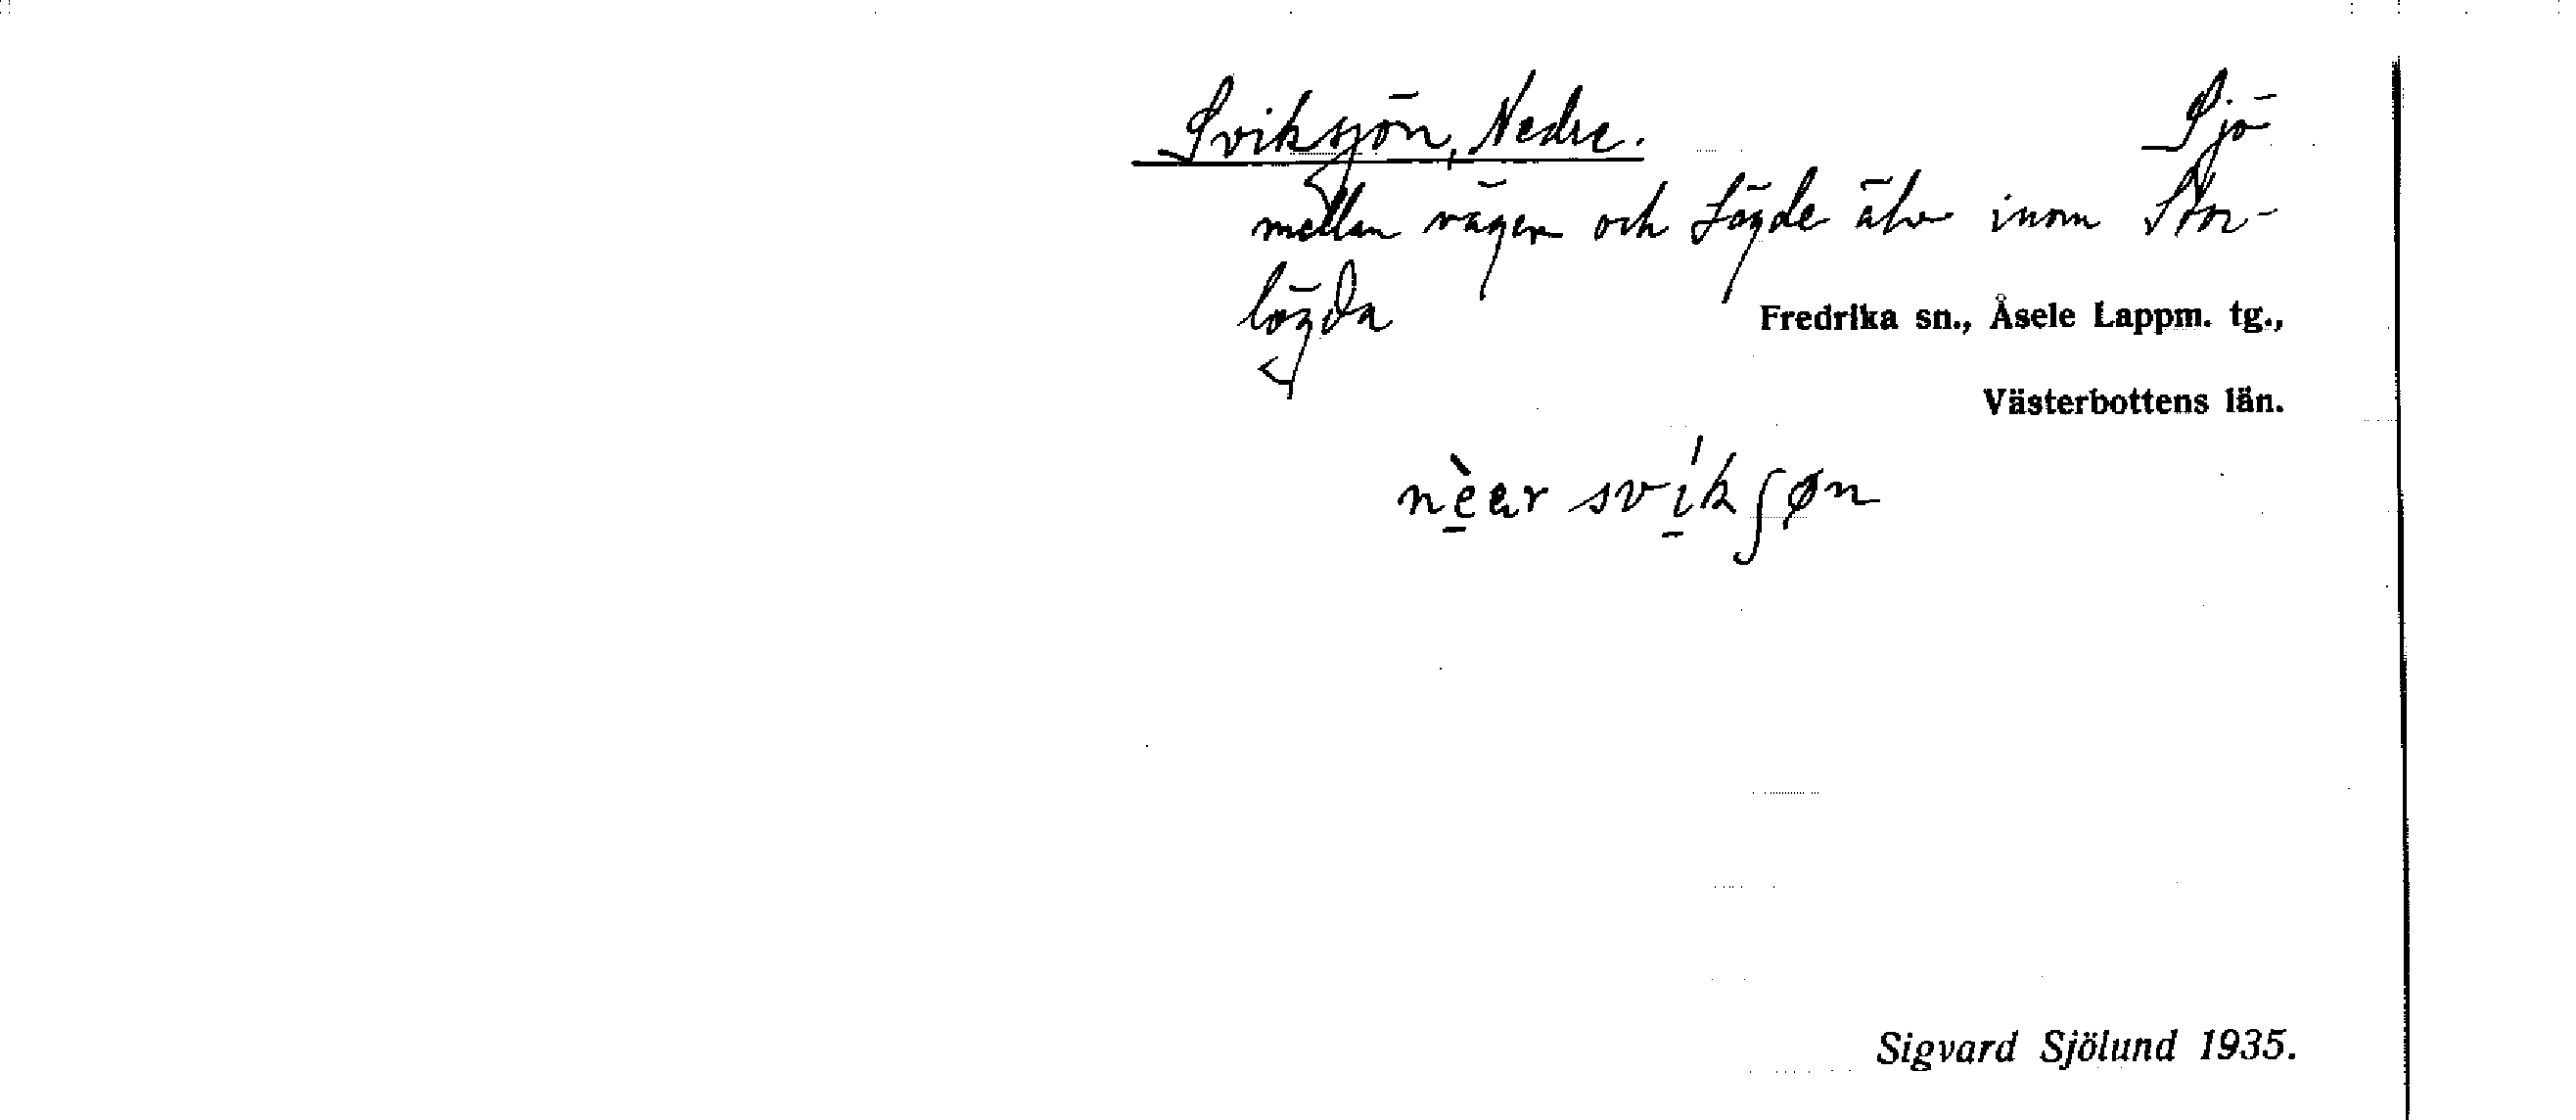 Sviksjön, Nedre. Sjö
mellan vägen och Lögde älv inom Stor-
lögda
Fredrika sn., Åsele Lappm. tg.,
Västerbottens län.
nè̱ar sví̱kʃøn
Sigvard Sjölund 1935.